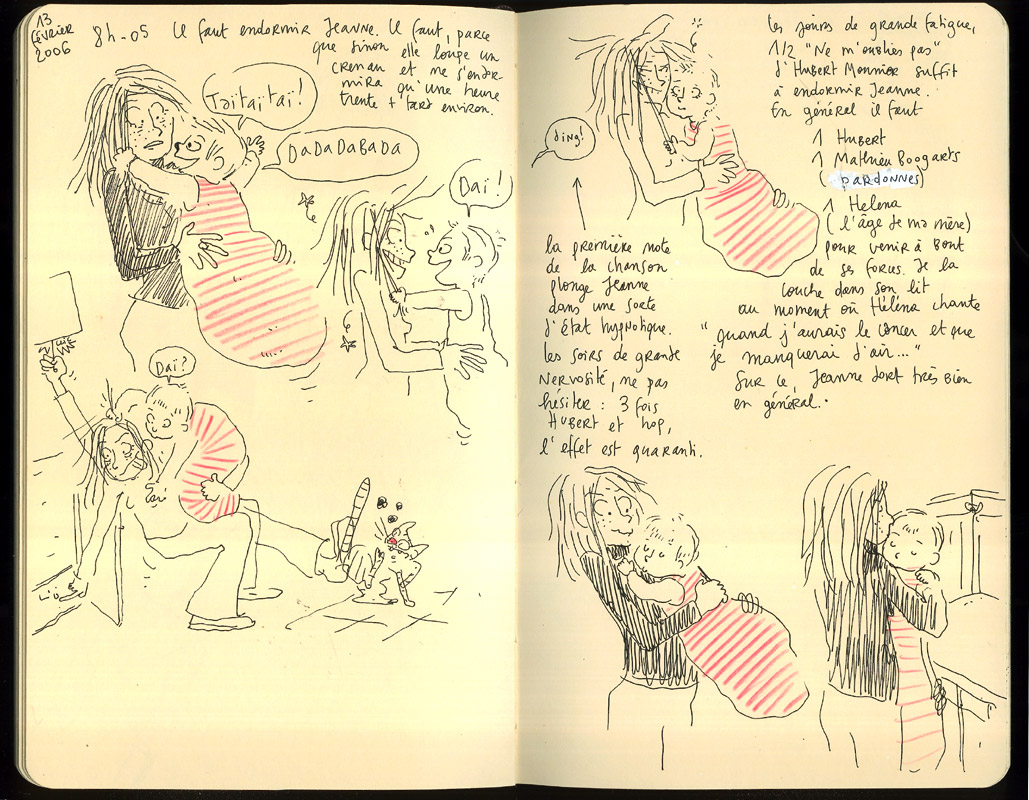 13
février
2006
8h-05 Il faut endormir Jeanne. Il faut, parce
que sinon elle loupe un
crenau et ne s'endor-
mira qu'une heure
trente + tard environ.
Taïtaitaï!
DADADABADA
Daï!
Daï?
ding!
la première note
de la chanson
plonge Jeanne
dans une sorte
d'état hypnotique.
les soirs de grande
Nervosité, ne pas
hésiter : 3 fois
Hubert et hop,
l'effet est guaranti.
les soirs de grande fatigue,
1/2 "Ne m'oublies pas"
d'Hubert Mounier suffit
à endormir Jeanne.
En général il faut
1 Hubert
1 Mathieu Boogarts
(PARDONNES)
1 Helena
(l'âge de ma mère)
pour venir à bout
de ses forces. Je la
couche dans son lit
au moment où Héléna chante
"quand j'aurais le cancer et que
je manquerai d'air..."
Sur ce, Jeanne dort très bien
en général.